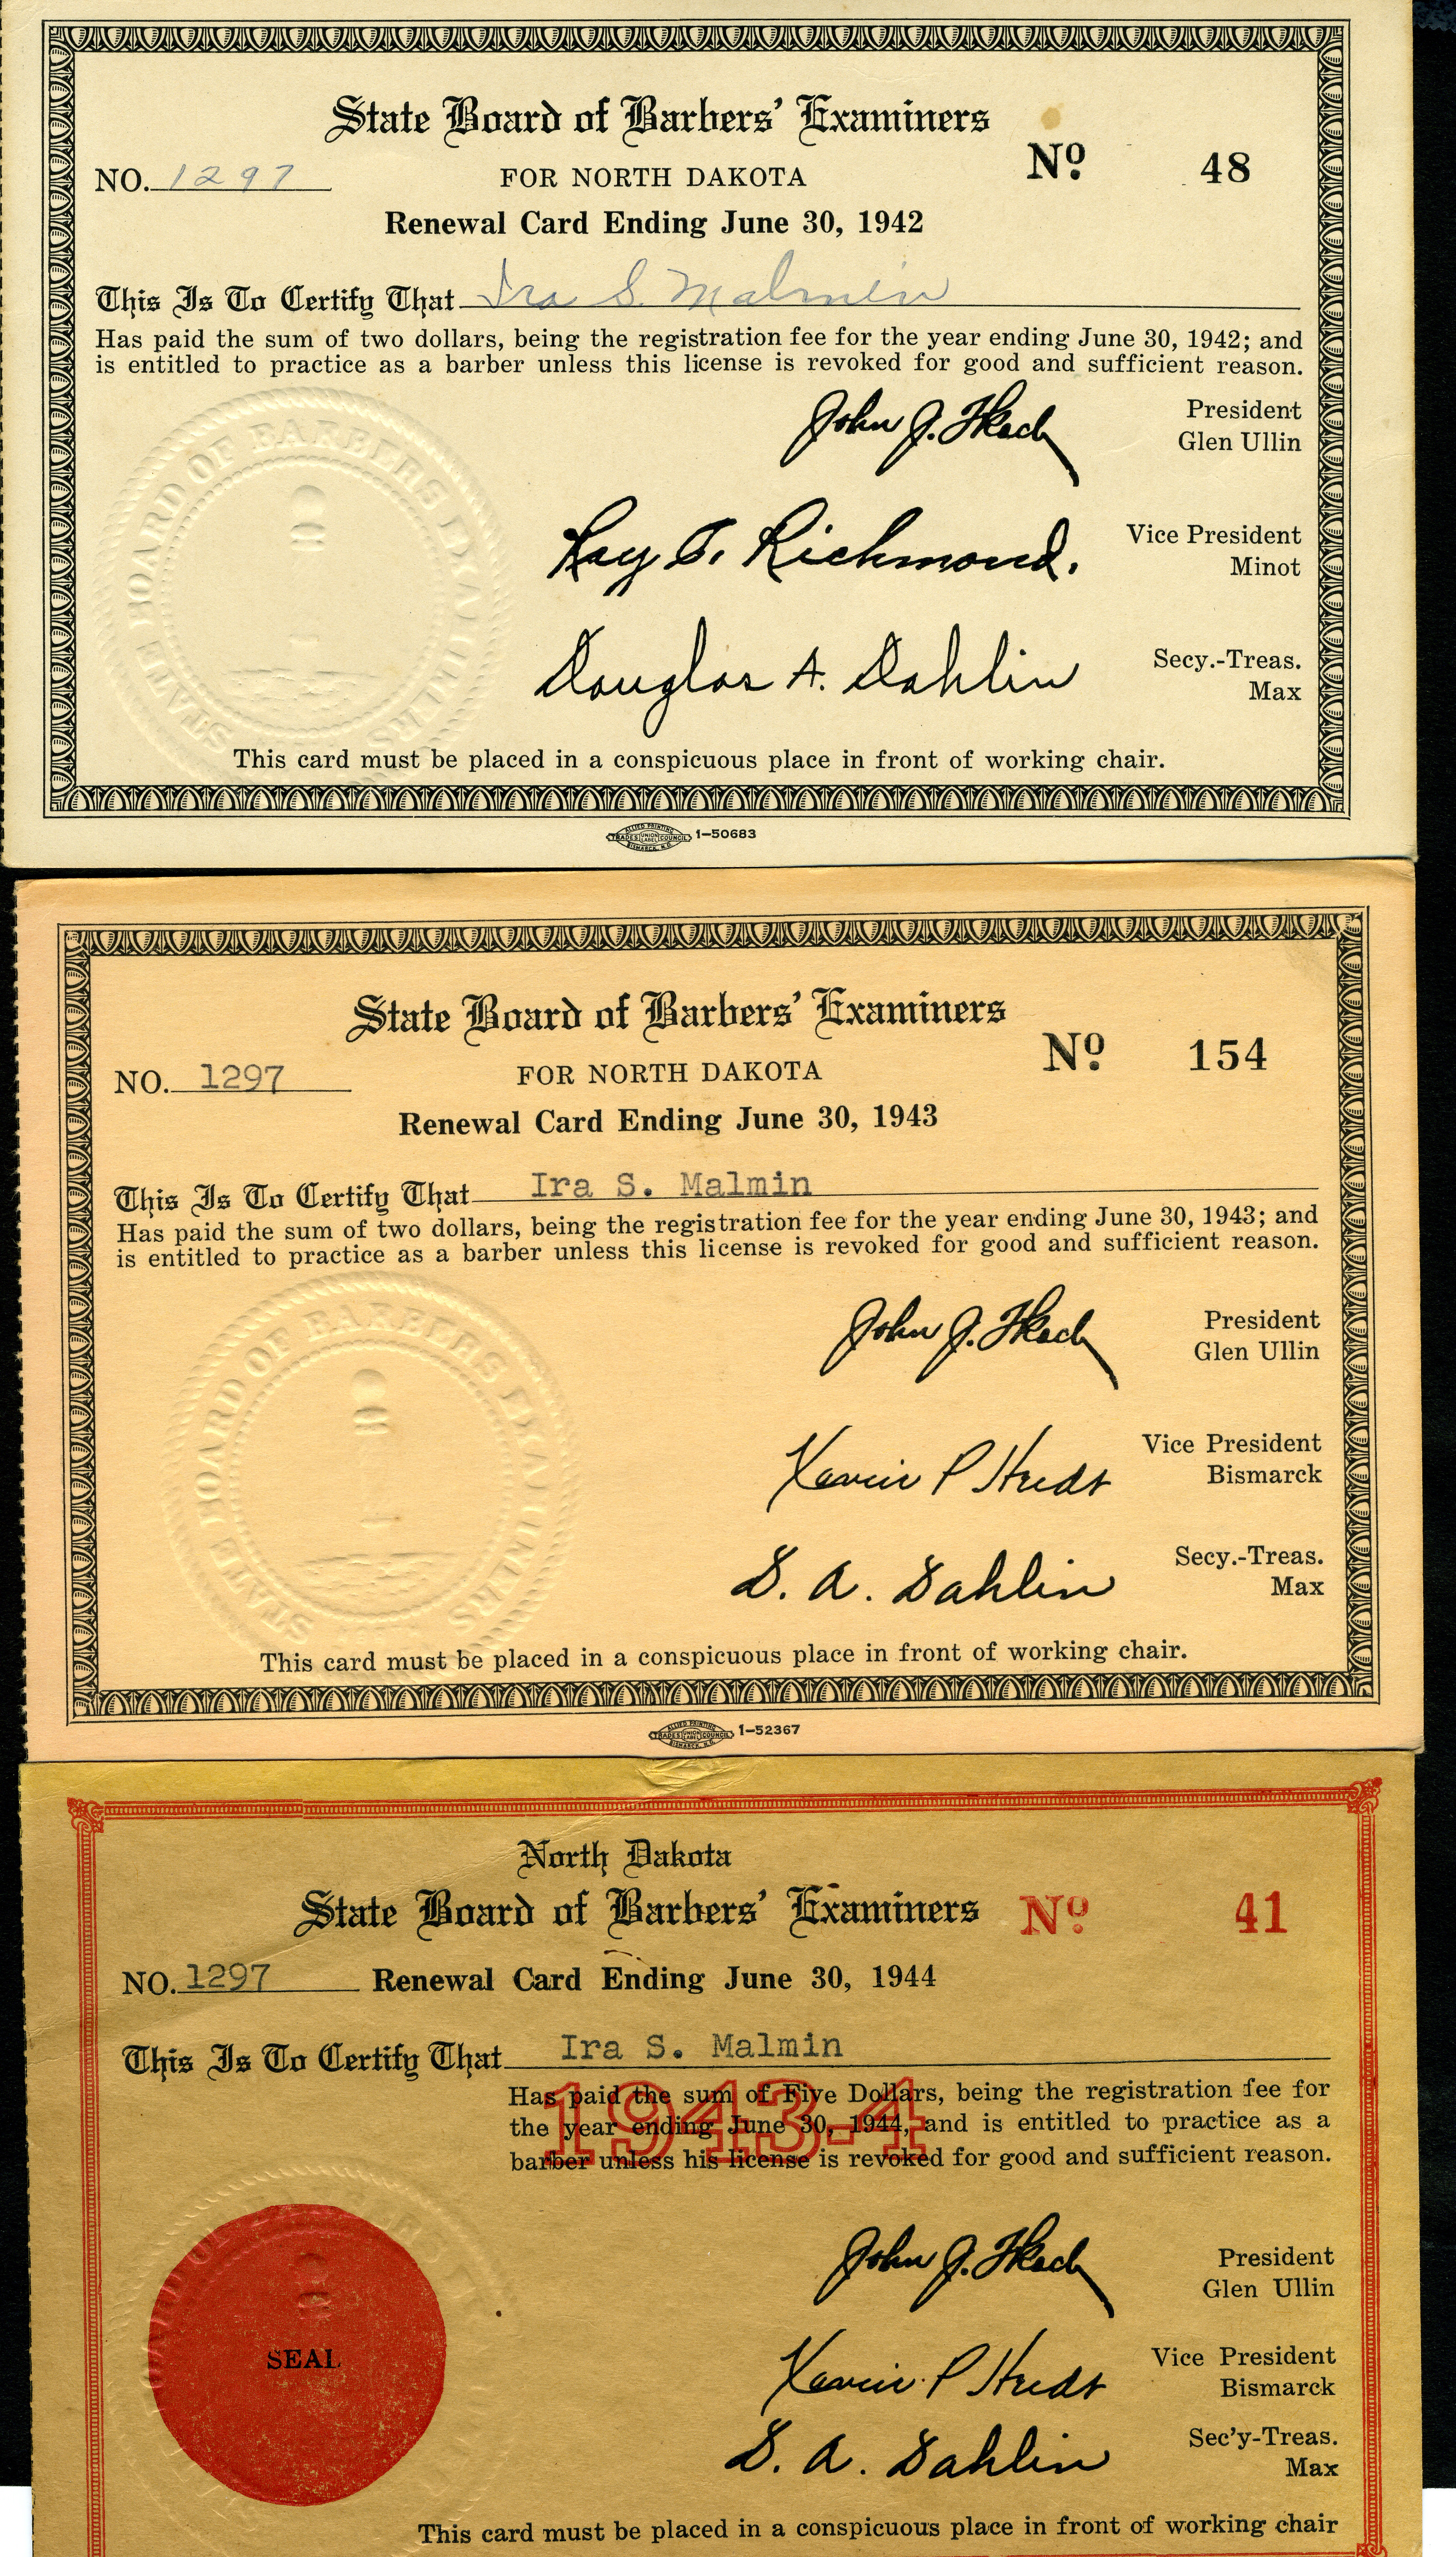 State Board of Barbers' Examiners
NO. 1297 FOR NORTH DAKOTA No 48
Renewal Card Ending June 30, 1942
This Is To Certify That Ira S. Malmin
Has paid the sum of two dollars, being the registration fee for the year ending June 30, 1942; and
is entitled to practice as a barber unless this license is revoked for good and sufficient reason.
John J. President
Glen Ullin
Ray T. Richmond. Vice President
Minot
Douglas A. Dahlin Secy.-Treas.
Max
STATE BOARD OF BARBERS EXAMINERS
This card must be placed in a conspicuous place in front of working chair.
ALLIED PRINTING
TRADES UNION LABEL COUNCIL 1-50683
BISMARCK, N.D.
State Board of Barbers' Examiners
NO. 1297 FOR NORTH DAKOTA No 154
Renewal Card Ending June 30, 1943
This Is To Certify That Ira S. Malmin
Has paid the sum of two dollars, being the registration fee for the year ending June 30, 1943; and
is entitled to practice as a barber unless this license is revoked for good and sufficient reason.
John J. President
Glen Ullin
P Vice President
Bismarck
D. A. Dahlin Secy.-Treas.
Max
STATE BOARD OF BARBERS EXAMINERS
This card must be placed in a conspicuous place in front of working chair.
ALLIED PRINTING
TRADES UNION LABEL COUNCIL 1-52367
BISMARCK, N.D.
North Dakota
State Board of Barbers' Examiners No 41
NO. 1297 Renewal Card Ending June 30, 1944
This Is To Certify That Ira S. Malmin
1943-4
Has paid the sum of Five Dollars, being the registration fee for
the year ending June 30, 1944, and is entitled to practice as a
barber unless his license is revoked for good and sufficient reason.
John J. President
Glen Ullin
SEAL
P Vice President
Bismarck
D. A. Dahlin Sec'y-Treas.
Max
This card must be placed in a conspicuous place in front of working chair